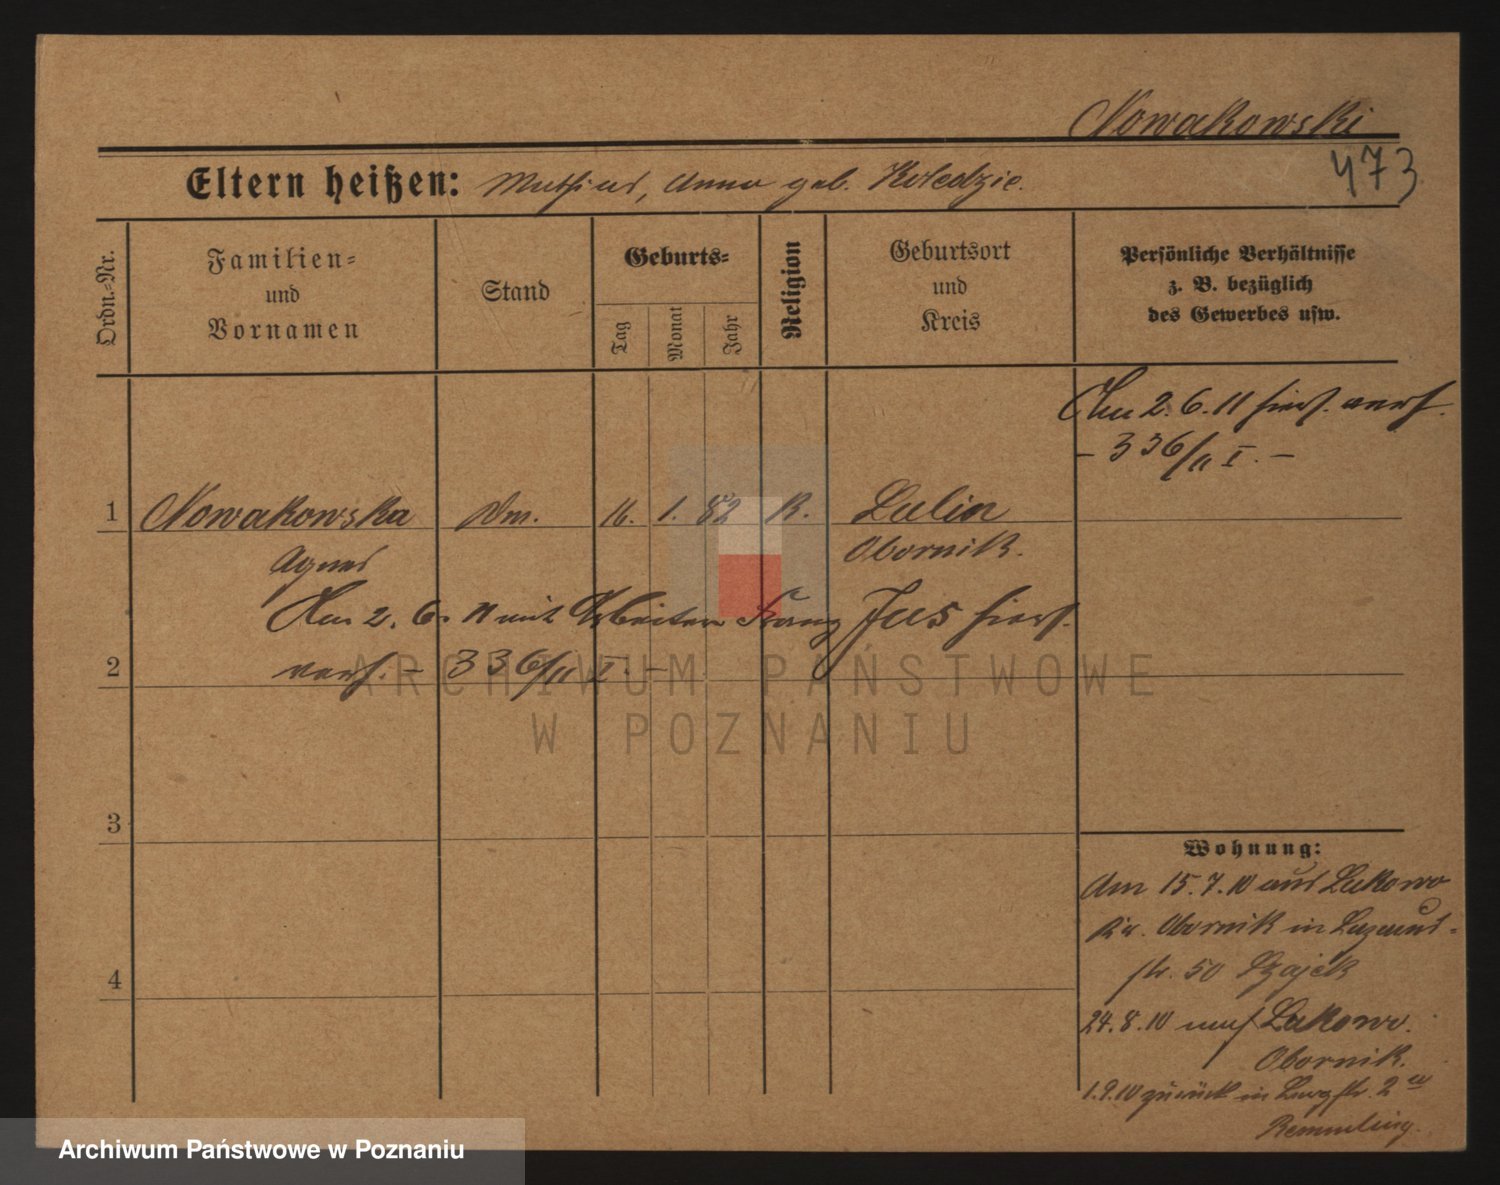 Nowakowski
473
Eltern heißen: Mathias, Anna geb. Koledzie.
Ordn.-Nr.
Familien-
und
Vornamen
Stand
Geburts-
Tag
Monat
Jahr
Religion
Geburtsort
und
Kreis
Persönliche Verhältnisse
z. B. bezüglich
des Gewerbes usw.
Am 2.6.11 hierf. verh.
– 336/11 I. –
1 Nowakowska Dm. 16. 1. 82 K. Lulin
Agnes Obornik.
Am 2. 6. 11 mit Arbeiter Franz Jus hierf.
2 verh. – 336/11 I. –
3
4
Wohnung:
Am 15.7.10 aus Lukowo
Kr. Obornik in
str. 50 Szajek
24.8.10 nach Lukowo.
Obornik.
1.9.10 zurück in str. 2
Remmling.
ARCHIWUM PAŃSTWOWE
W POZNANIU
Archiwum Państwowe w Poznaniu